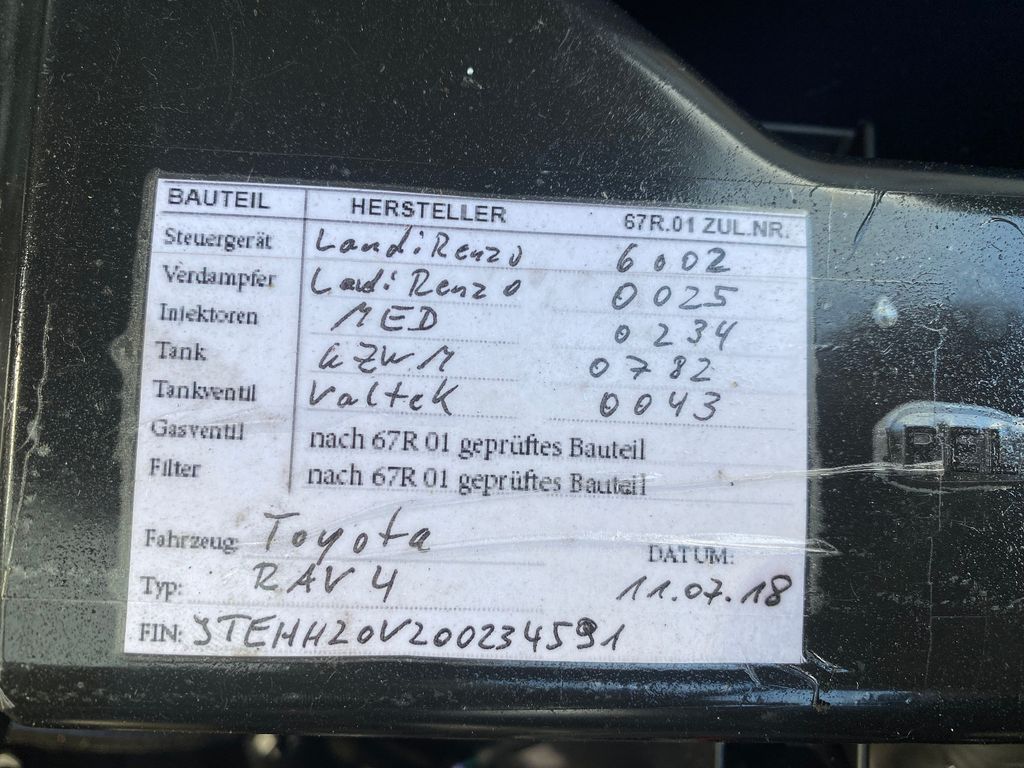 BAUTEIL HERSTELLER 67R.01 ZUL.NR.
Steuergerät LandiRenzo 6002
Verdampfer Landi Renzo 0025
Injektoren MED 0234
Tank GZWM 0782
Tankventil Valtek 0043
Gasventil nach 67R 01 geprüftes Bauteil
Filter nach 67R 01 geprüftes Bauteil
Fahrzeug: Toyota DATUM:
Typ: RAV4 11.07.18
FIN: JTEHH20V200234591